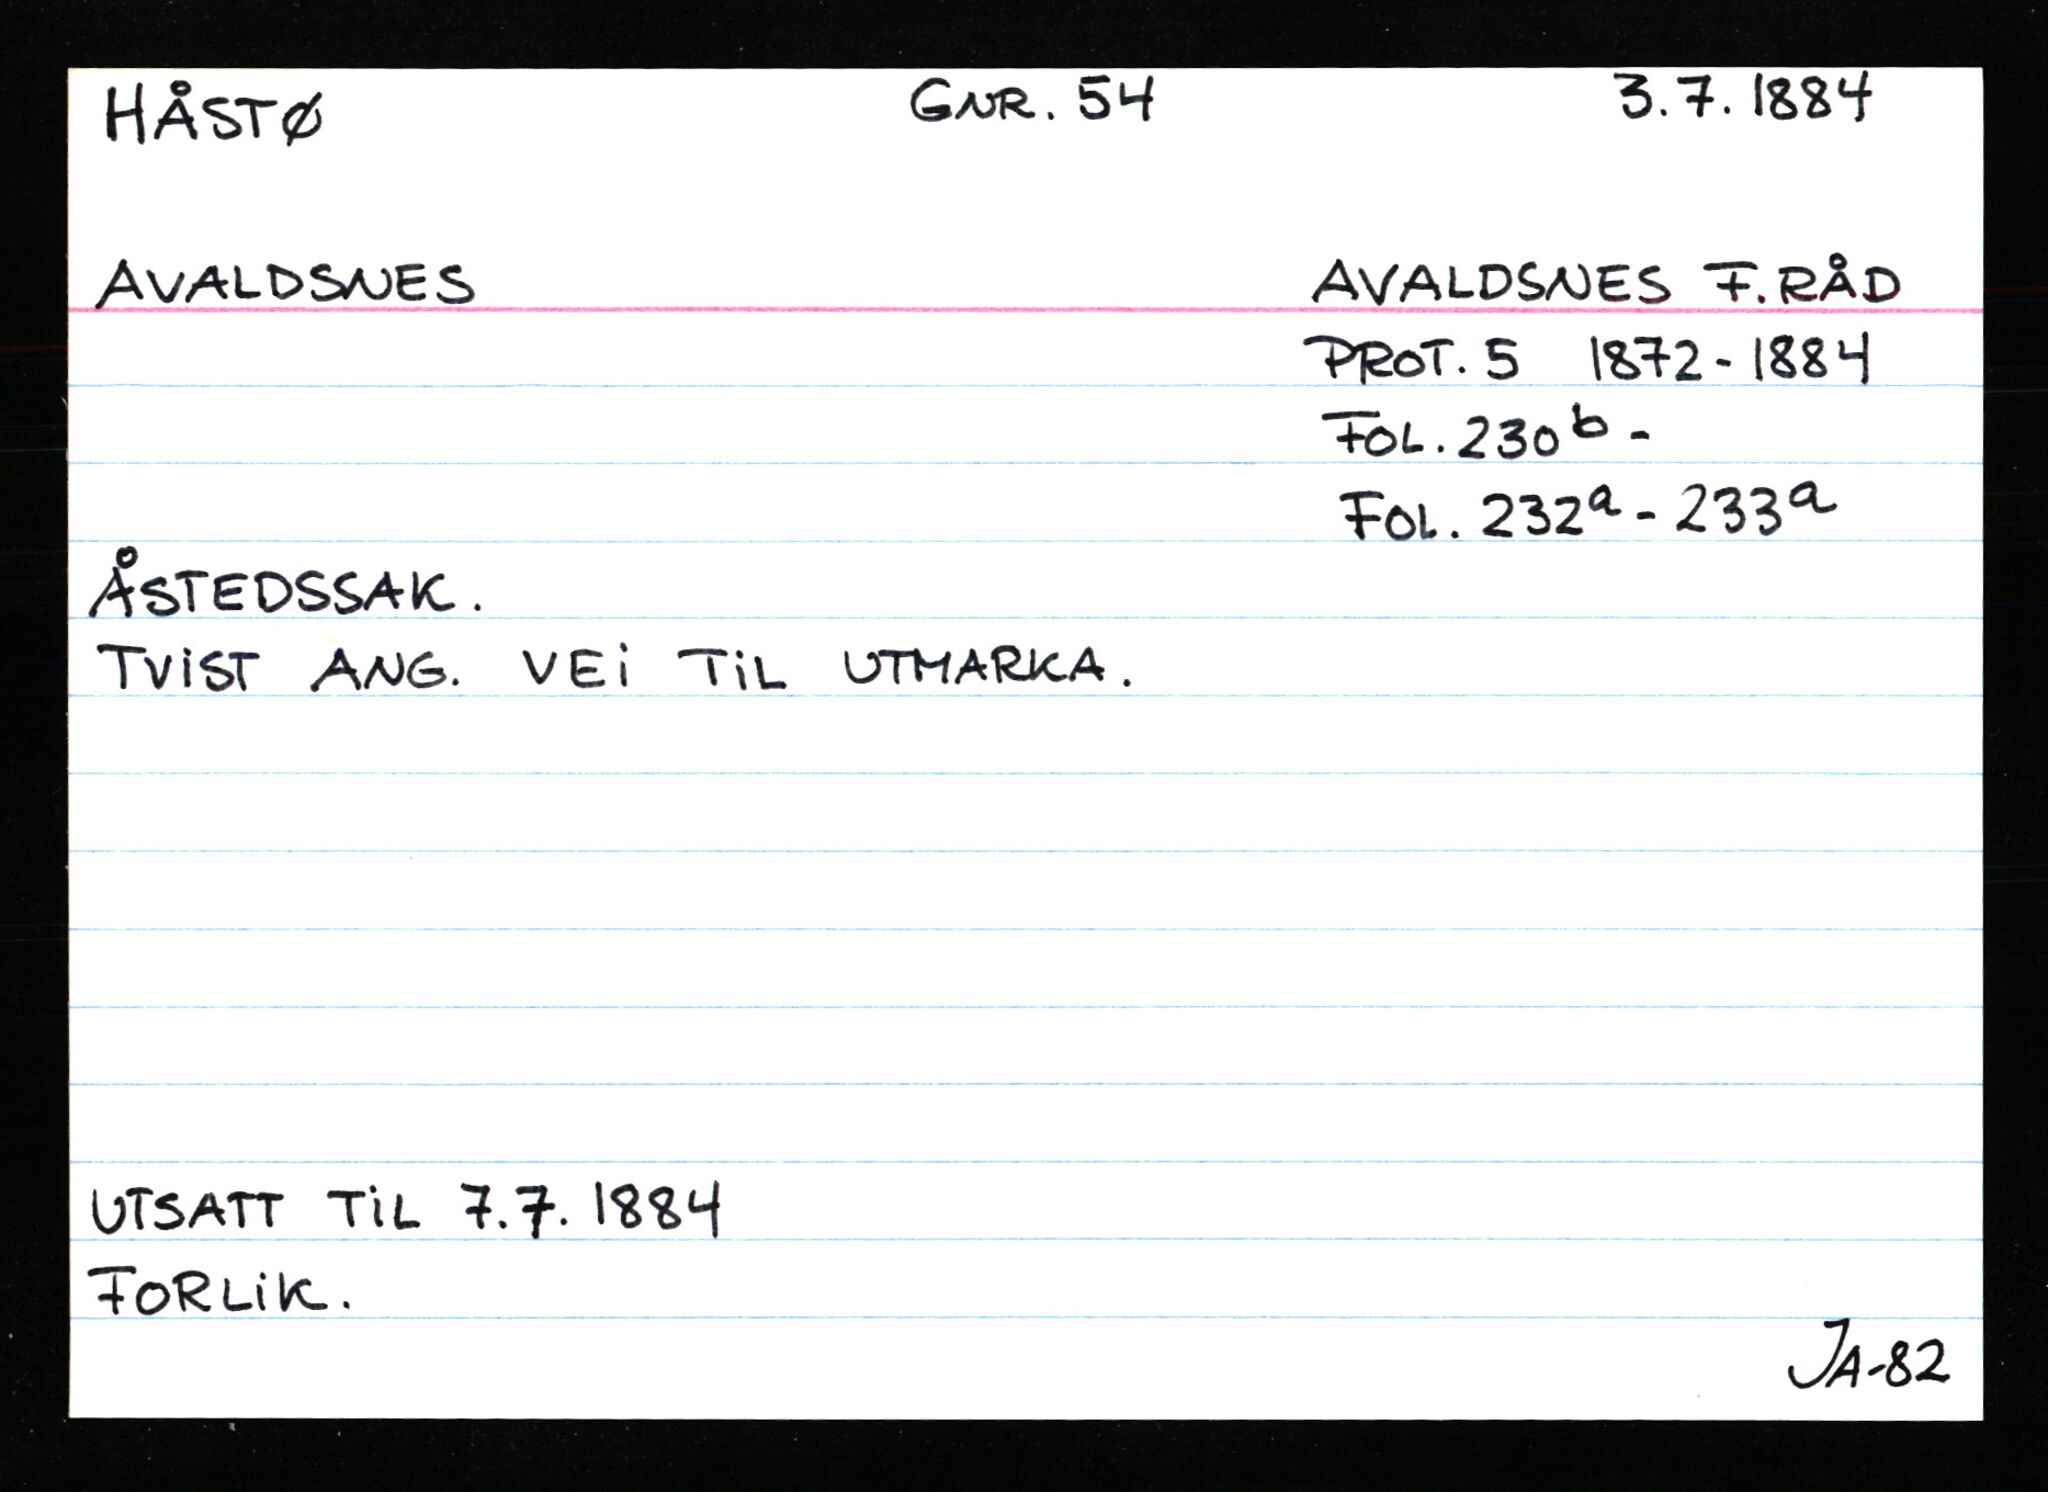 HÅSTØ GNR. 54 3.7.1884
AVALDSNES AVALDSNES F.RÅD
PROT. 5 1872-1884
FOL. 230b -
FOL. 232a - 233a
ÅSTEDSSAK.
TViST ANG. VEi TiL UTMARKA.
UTSATT TiL 7.7. 1884
FORLiK.
JA-82